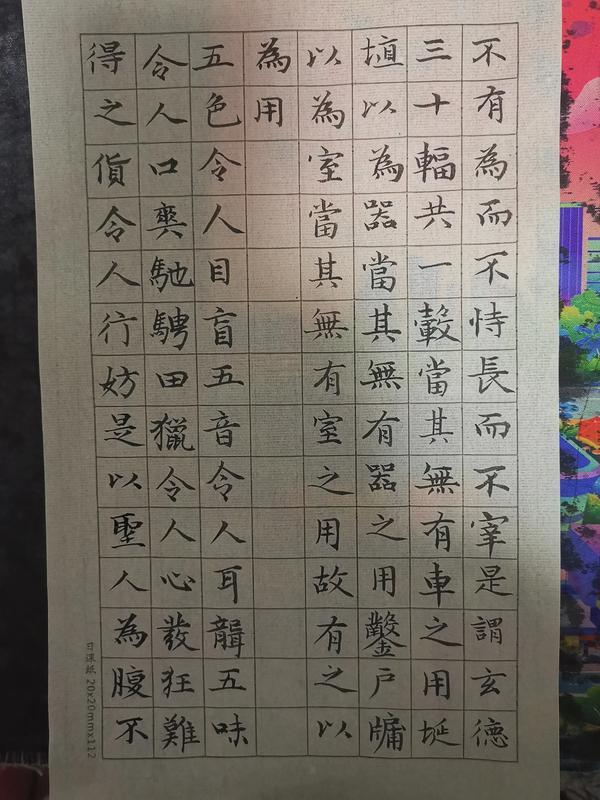 不有為而不恃長而不宰是謂玄德
三十輻共一轂當其無有車之用埏
埴以為器當其無有器之用鑿戶牖
以為室當其無有室之用故有之以
為用
五色令人目盲五音令人耳聾五味
令人口爽馳騁田獵令人心發狂難
得之貨令人行妨是以聖人為腹不
日课紙 20x20mmx112